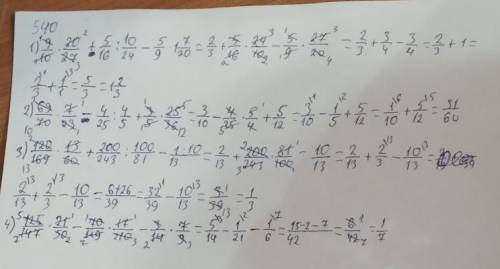 540
1) 9/10 · 20/27 + 5/16 : 10/24 - 5/9 : 7/20 = 2/3 + 5/16 · 24/10 - 5/9 · 27/20 = 2/3 + 3/4 - 3/4 = 2/3 + 1 =
2/3 + 1/1 = 5/3 = 1 2/3
2) 69/70 · 7/23 - 4/25 : 4/5 + 3/5 · 25/36 = 3/10 - 4/25 · 5/4 + 5/12 = 3/10 - 1/5 + 5/12 = 1/10 + 5/12 = 31/60
3) 120/169 · 13/60 + 200/243 : 100/81 - 1/13 · 10 = 2/13 + 200/243 · 81/100 - 10/13 = 2/13 + 2/3 - 10/13 =
2/13 + 2/3 - 10/13 = 6+26/39 - 32/39 - 10/13 = 1/3
4) 125/147 · 21/50 - 10/119 · 17/210 - 3/14 · 7/9 = 5/14 - 1/21 - 1/6 = 15-2-7/42 = 6/42 = 1/7